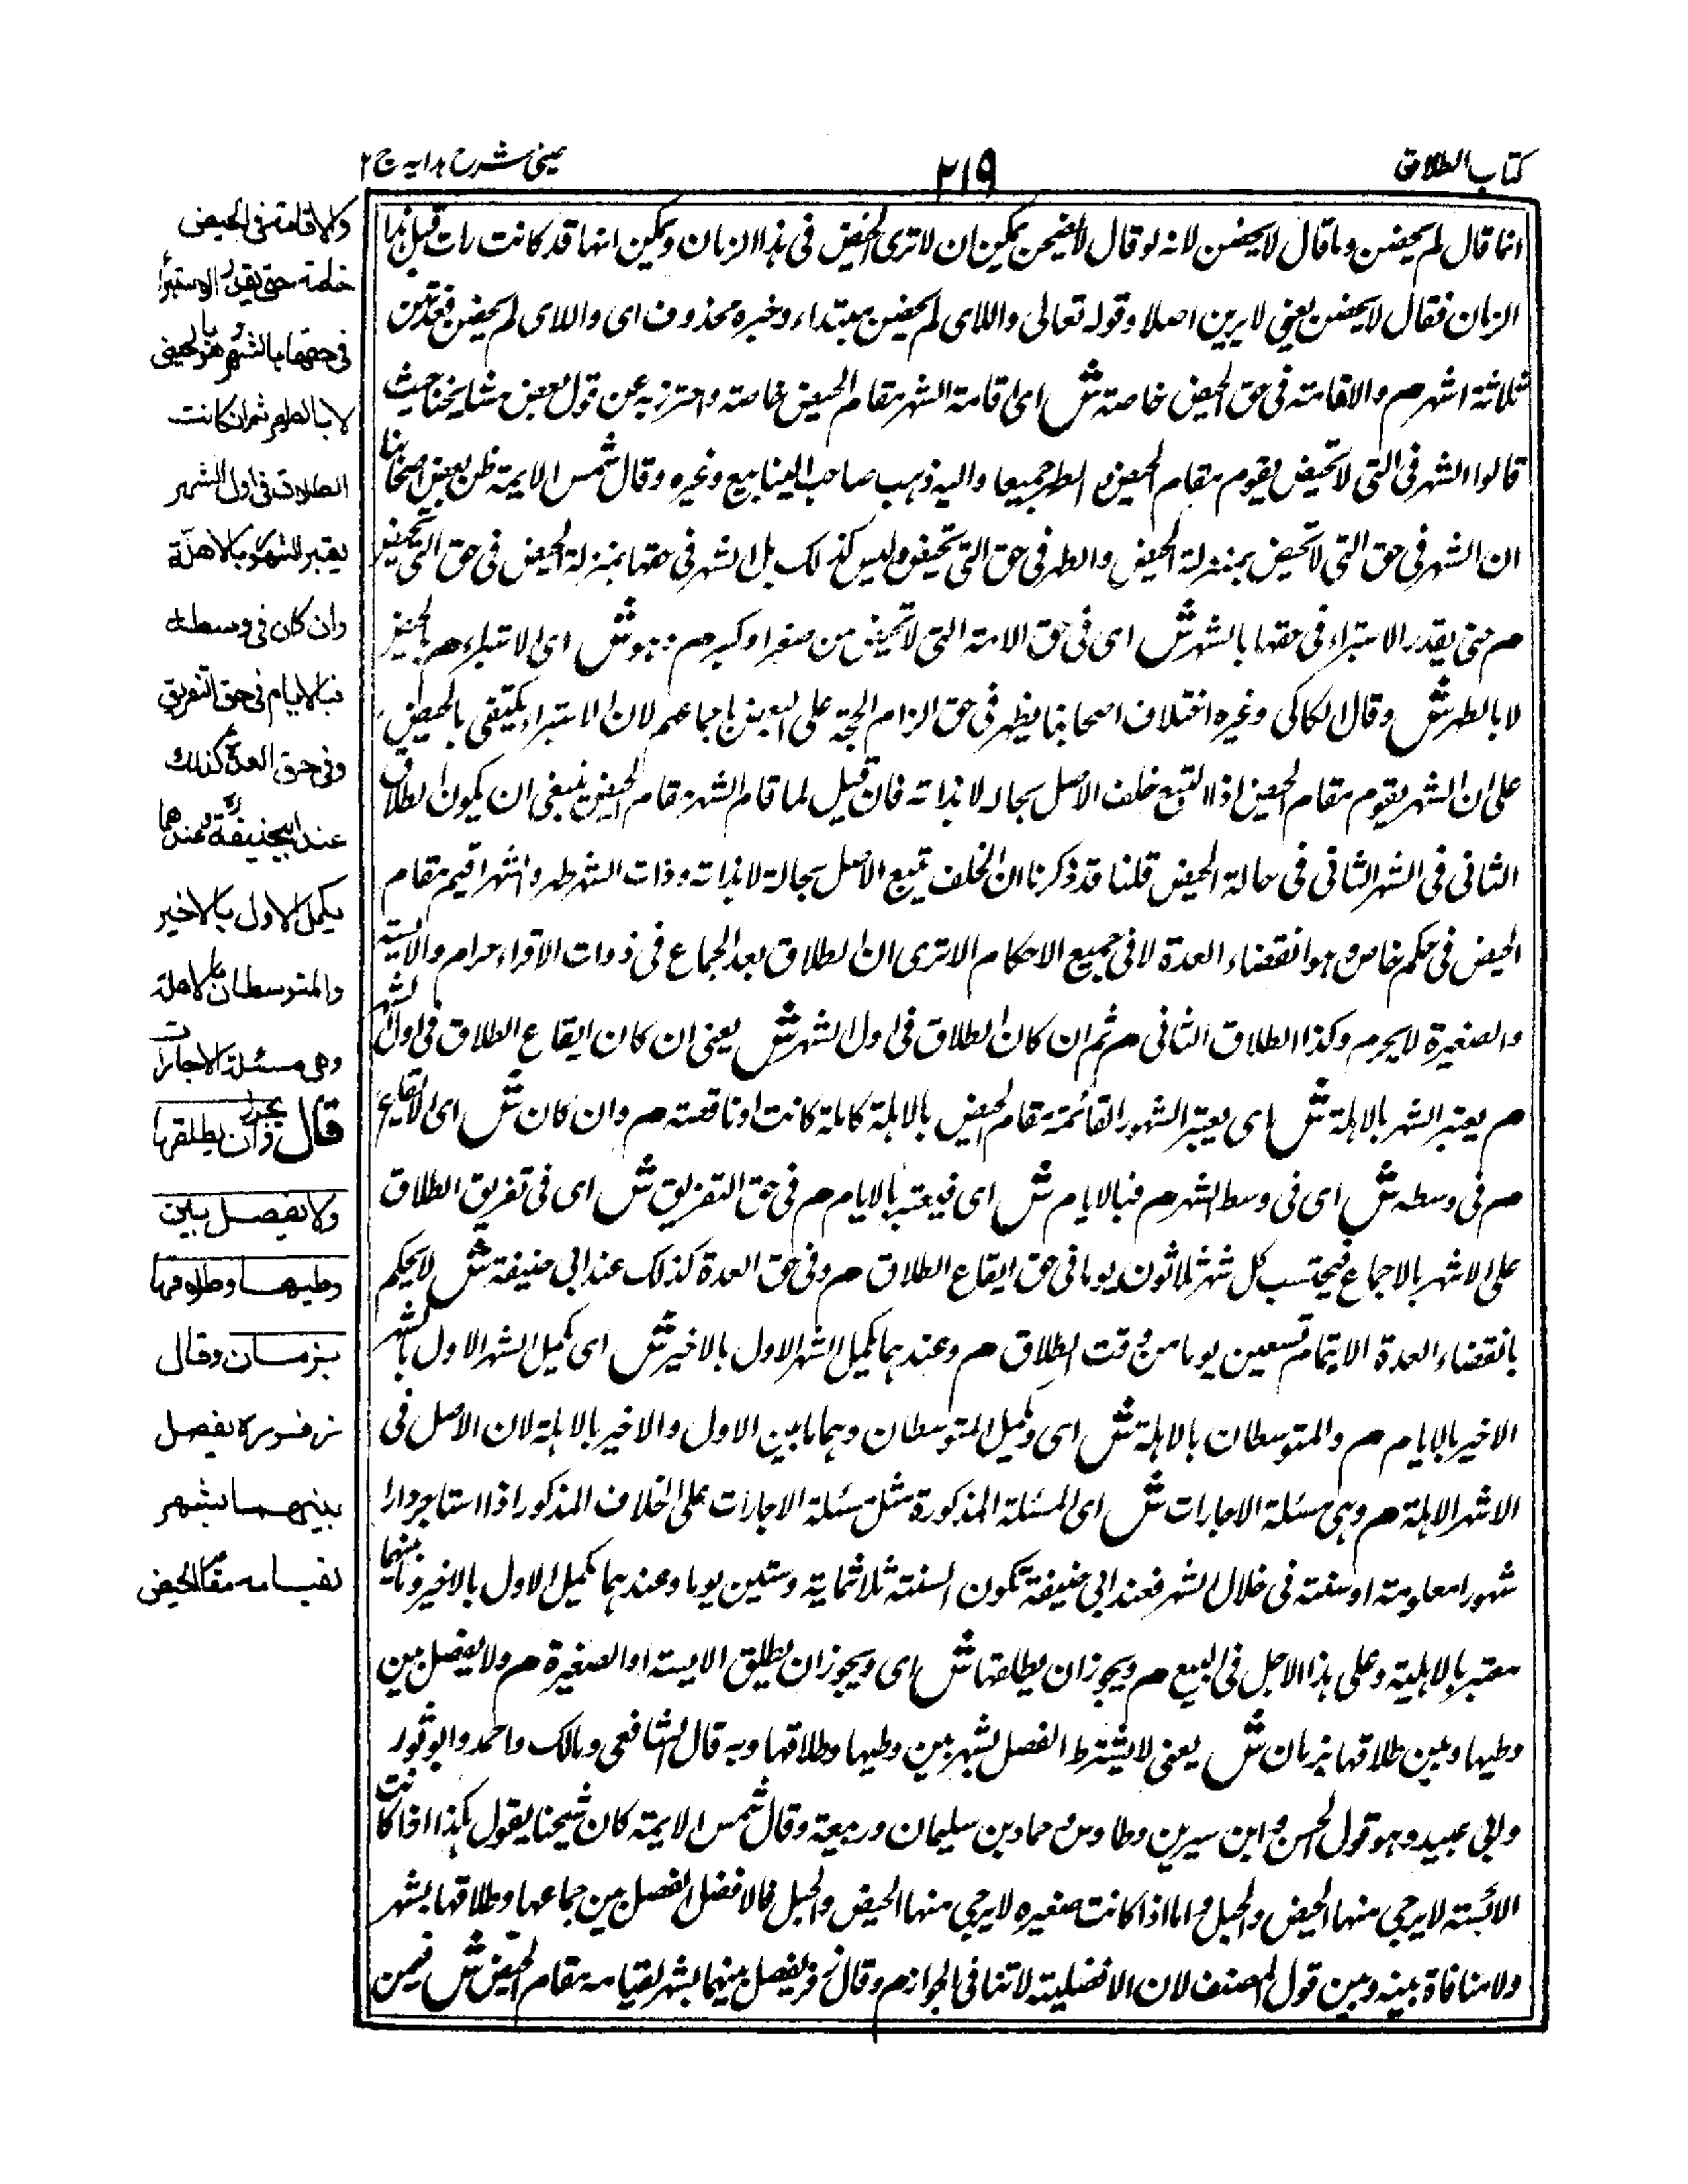 كتاب الطلاق
٢١٩
عینی شرح ہدایہ ج ٢
انما قال لم يحضن وما قال لا يحضن لانه لو قال لا يحضن يمكن ان لا ترى الحيض فى ہذا الزمان ويمكن انہا قد كانت رات قبل ہذا
الزمان فقال لا يحضن يعني لا يرين اصلا وقوله تعالى واللاى لم يحضن مبتداء وخبره محذوف اى واللاى لم يحضن فعدتہن
ثلاثة اشہر م والاقامة فى حق الحيض خاصة ش اى اقامة الشہر مقام الحيض خاصة واحترز به عن قول بعض مشايخنا حيث
قالوا الشہر فى التى لا تحيض يقوم مقام الحيض و الطہر جميعا واليه ذہب صاحب الينابيع وغيره وقال شمس الايمة ظن بعض اصحابنا
ان الشہر فى حق التى لا تحيض بمنزلة الحيض والطہر فى حق التى تحيض وليس كذلك بل الشہر فى حقہا بمنزلة الحيض فى حق التى تحيض
م حتى يقدر الاستبراء فى حقہا بالشہر ش اى فى حق الامة التى لا تحيض من صغر او كبر م وہو ش اى الاستبراء م بالحيض
لا بالطہر ش وقال الكاكى وغيره اختلاف اصحابنا يظہر فى حق الزام الحجة على البعض باجماعہم لان الاستبراء يكتفى بالحيض
على ان الشہر يقوم مقام الحيض اذ التبع خلف الاصل بحاله لا بذاته فان قيل لما قام الشہر مقام الحيض ينبغى ان يكون الطلاق
الثانى فى الشہر الثانى فى حالة الحيض قلنا قد ذكرنا ان الخلف تبع الاصل بحاله لا بذاته وذات الشہر طہر واشہر اقيم مقام
الحيض فى حكم خاص وہو انقضاء العدة لا فى جميع الاحكام الا ترى ان الطلاق بعد الجماع فى ذوات الاقراء حرام والايسة
والصغيرة لا يحرم وكذا الطلاق الثانى م ثم ان كان الطلاق فى اول الشہر ش يعنى ان كان ايقاع الطلاق فى اول الشہر
م يعتبر الشہر بالاہلة ش اى يعتبر الشہور القائمة مقام الحيض بالاہلة كاملة كانت او ناقصة م وان كان ش اى الايقاع
م فى وسطه ش اى فى وسط الشہر م فبالايام ش اى فيعتبر بالايام م فى حق التفريق ش اى فى تفريق الطلاق
على الاشہر بالاجماع فيحتسب كل شہر ثلاثون يوما فى حق ايقاع الطلاق م وفى حق العدة كذلك عند ابى حنيفة ش لا يحكم
بانقضاء العدة الا بتمام تسعين يوما من وقت الطلاق م وعندہما يكمل الشہر الاول بالاخير ش اى يكمل الشہر الاول بالشہر
الاخير بالايام م والمتوسطان بالاہلة ش اى ويكمل المتوسطان وہما ما بين الاول والاخير بالاہلة لان الاصل فى
الاشہر الاہلة م وہى مسئلة الاجارات ش اى المسئلة المذكورة مثل مسئلة الاجارات على الخلاف المذكور اذا استاجر دارا
شہورا معلومة او سنة فى خلال الشہر فعند ابى حنيفة تكون السنة ثلاثماية وستين يوما وعندہما يكمل الاول بالاخير وما بينہما
معتبر بالاہلية وعلى ہذا الاجل فى البيع م ويجوز ان يطلقہا ش اى ويجوز ان يطلق الايسة او الصغيرة م ولا يفصل بين
وطيہا وبين طلاقہا بزمان ش يعنى لا يشترط الفصل بشہر بين وطيہا وطلاقہا وبه قال الشافعى ومالك واحمد وابو ثور
وابى عبيد وہو قول الحسن وابن سيرين وطاوس وحماد بن سليمان وربيعة وقال شمس الايمة كان شيخنا يقول ہكذا اذا كانت
الائسة لا يرجى منہا الحيض والحبل واما اذا كانت صغيره لا يرجى منہا الحيض والحبل فالافضل الفصل بين جماعہا وطلاقہا بشہر
ولا منافاة بينه وبين قول المصنف لان الافضلية لا تنافى الجواز م وقال زفر يفصل بينہما بشہر لقيامه مقام الحيض ش فيمن
والاقامة فى الحيض
خاصة حتى يقدر الاستبراء
فى حقها بالشهر وهو بالحيض
لا بالطهر ثم ان كانت
الطلاق فى اول الشهر
يعتبر الشهور بالاهلة
وان كان فى وسطه
فبالايام فى حق التفريق
وفى حق العدة كذلك
عند ابيحنيفة وعندهما
يكمل الاول بالاخير
والمتوسطان بالاهلة
وهى مسئلة الاجارات
قال ويجوز ان يطلقها
ولا يفصل بين
وطيها وطلاقها
بزمان وقال
زفر يفصل
بينهما بشهر
لقيامه مقام الحيض